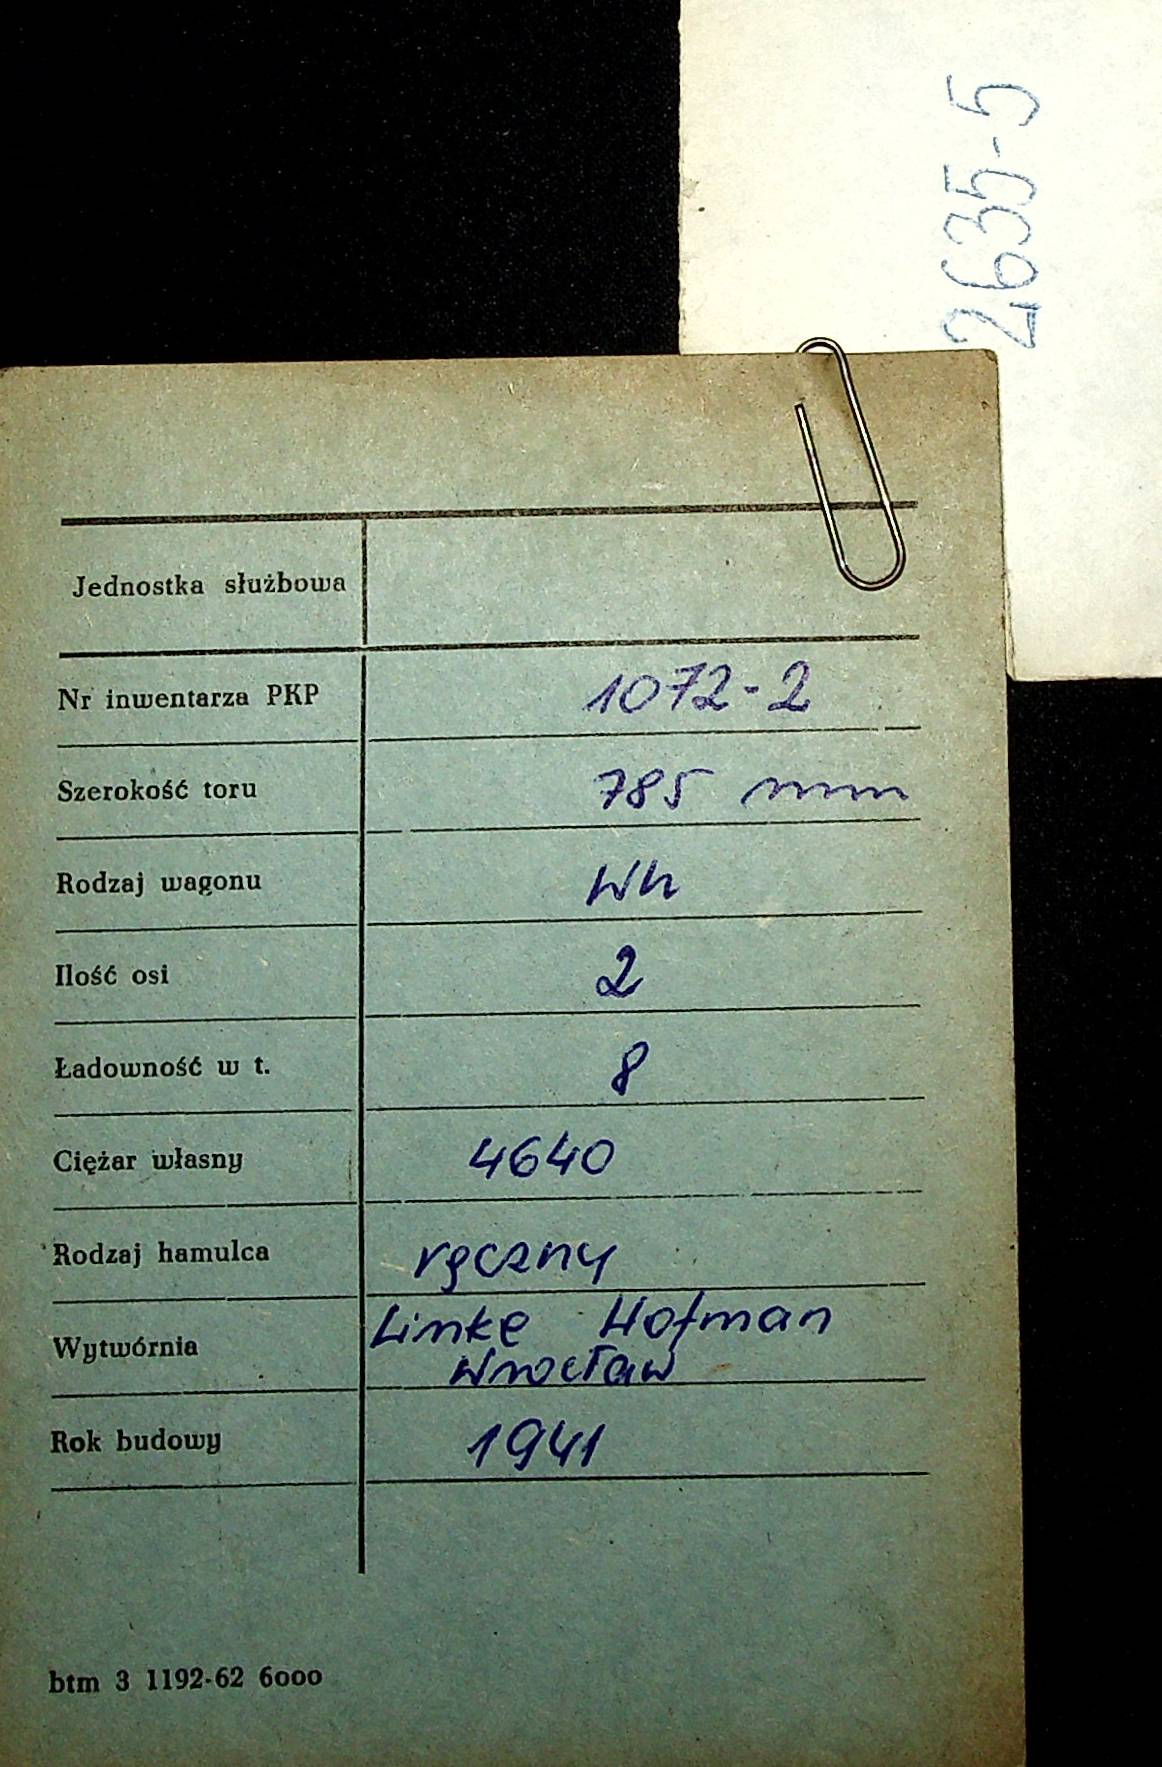 2635-5
Jednostka służbowa
Nr inwentarza PKP 1072-2
Szerokość toru 785 mm
Rodzaj wagonu Wh
Ilość osi 2
Ładowność w t. 8
Ciężar własny 4640
Rodzaj hamulca ręczny
Wytwórnia Linke Hofman
Wrocław
Rok budowy 1941
btm 3 1192-62 6000